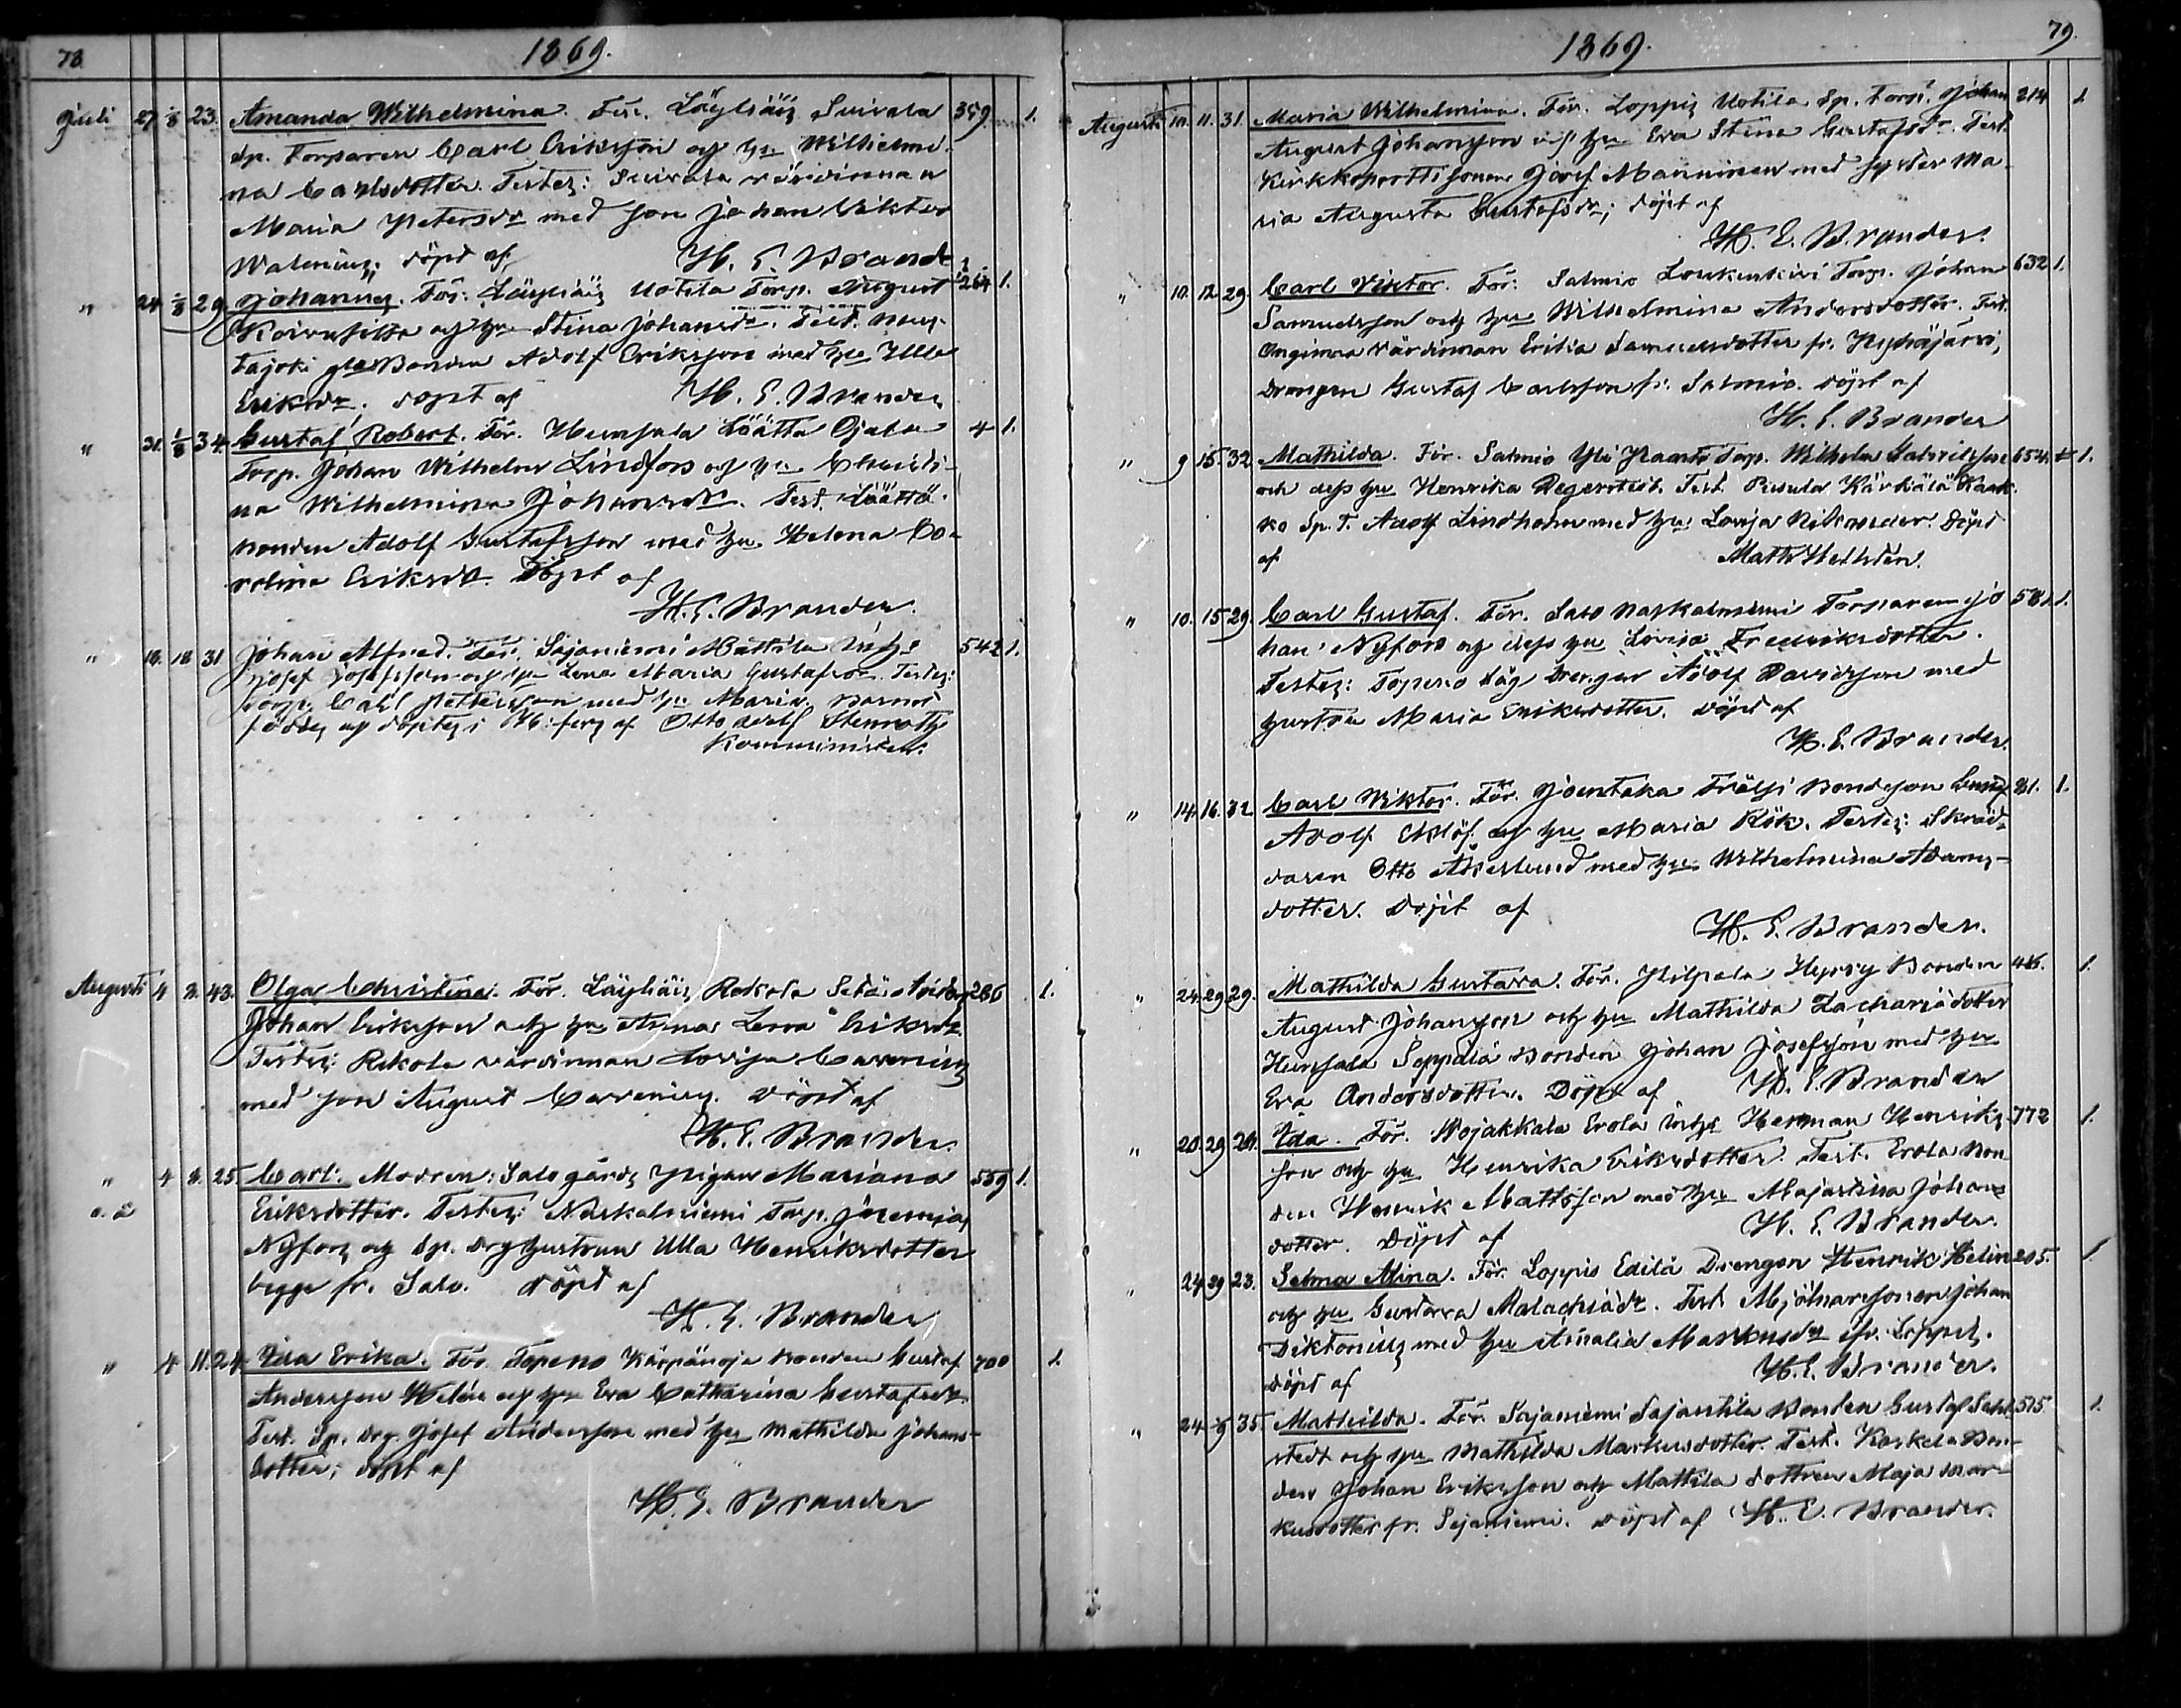 78.
1869.
Juli 27 1/8 23. Amanda Wilhelmina. För. Läyliäis Suirala 359. 1.
Sp. Torparen Carl Eriksson och hu Wilhelmi-
na Carlsdotter. Testes: Suirala värdinnan
Maria Petersdr med son Johan Viktor
döpt af H. E. Brander
" 24 1/8 29. Johannes. För. Läyliäis Uotila Torp. August 264 1.
och hu Stina Johansdr. Test.
Bonden Adolf Eriksson med hu Ulla
Eriksdr. döpt af H. E. Brander
" 31. 1/8 34. Gustaf Robert. För. Hunsala Löättä Ojala 4 1.
Torp. Johan Wilhelm Lindfors och hu Christi-
na Wilhelmina Johansdr. Test. Löättä
bonden Adolf Gustafsson med hu Helena Ca-
rolina Eriksdr. Döpt af
H. E. Brander.
" 16. 18 31 Johan Alfred. För. Sajaniemi Mattila Inhs 542 1.
Josef Josefsson och hu Lena Maria Gustafsdr. Testes:
Torp. Carl Pettersson med hu Maria. Barnet
föddes och döptes i af Otto Adolf Stenroth
Kommunister.
Augusti 4 8. 43. Olga Christina. För. Läyliäis Rekola 266 1.
Johan Eriksson och hu Anna Lena Eriksdr.
Testes: Rekola värdinnan Lovisa
med son August döpt af
H. E. Brander.
" 4 8. 25. Carl. Modren: Salo gårds pigan Mariana 559 1.
o. ä Eriksdotter. Testes: Naskalniemi Torp. Jeremias
Nyfors och Sp. Drg hustrun Ulla Henriksdotter
begge fr. Salo. döpt af
H. E. Brander
" 4 11. 24. Ida Erika. För. Topeno Kärpänoja bonden Gustaf 700 1.
Andersson Helin och hu Eva Catharina Gustafsdr.
Test. Sp. Drg. Josef Andersson med hu Mathilda Johans-
dotter; döpt af
H. E. Brander
1869.
79.
Augusti 10. 11. 31. Maria Wilhelmina. För. Loppis Uotila Sp. Torp. Johan 214 1
August Johansson och hu Eva Stina Gustafsdr. Test.
sonen Josef Manninen med syster Ma-
ria Augusta Gustafsdr; döpt af
H. E. Brander.
" 10. 12 29. Carl Viktor. För: Salmis Torp. Johan 632 1.
Samuelsson och hu Wilhelmina Andersdotter. Test.
värdinnan Erika Samuelsdotter fr. Hyhäjärvi,
drengen Gustaf Carlsson fr. Salmis. döpt af
H. E. Brander
" 9 15. 32 Mathilda. För. Salmis Yli Torp. Wilhelm Gabrielsson 654. 1.
och dess hu Henrika Test. Pusula Kärkälä Kaak-
ko Sp. T. Adolf Lindholm med hu Lovisa Döpt
af Math Hellstén.
" 10. 15 29. Carl Gustaf. För. Salo Naskalniemi Torparen Jo- 561. 1.
han Nyfors och dess hu Lovisa Fredriksdotter.
Testes: Topeno Drengen Adolf Davidsson med
hustru Maria Eriksdotter. döpt af
H. E. Brander.
" 14. 16. 32. Carl Viktor. För. Joentaka Frälsi Bondeson Gustaf 21. 1.
Adolf Eklöf och hu Maria Kök. Testes: Skräd-
daren Otto Åkerlund med hu Wilhelmina Adams-
dotter. Döpt af
H. E. Brander.
" 24. 29 29. Mathilda Gustava. För. Hilpala Bonden 46. 1.
August Johansson och hu Mathilda Zachariädotter
Hunsala Seppälä bonden Johan Josefsson med hu
Eva Andersdotter. Döpt af H. E. Brander
" 20. 29 24. Ida. För. Wojakkala Erola Inhs Herman Henriks- 772 1.
son och hu Henrika Eriksdotter. Test. Erola Bon-
den Henrik Mattsson med hu Majastina Johans-
dotter. Döpt af H. E. Brander.
" 24 29 23. Selma Mina. För. Loppis Edilä Drengen Henrik Helin 205. 1
och hu Gustava Malachiädr. Test. Mjölnarsonen Johan
Diktonius med hu Amalia Markusdr fr. Loppis.
döpt af H. E. Brander.
" 24 35. Mathilda. För. Sajaniemi Sajantila Bonden Gustaf 515 1.
stedt och hu Mathilda Markusdotter. Test. Koskela Bon-
den Johan Eriksson och Mattila dottren Maja Mar-
kusdotter fr. Sajaniemi. döpt af H. E. Brander.